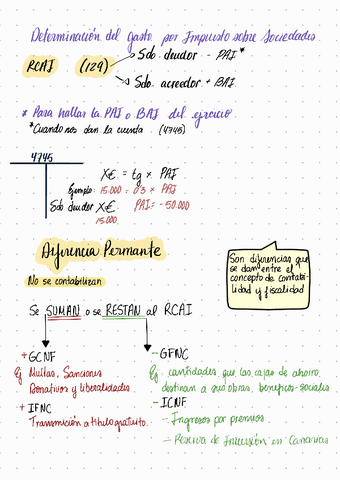 Determinación del gasto por Impuesto sobre Sociedades.
RCAI (129)
Sdo. deudor - PAI *
Sdo. acreedor + BAI.
* Para hallar la PAI o BAI del ejercicio
* Cuando nos dan la cuenta . (4745)
4745
X€ = tg × PAI
Ejemplo: 15.000 = 0'3 × PAI
Sdo deudor X€ PAI = -50.000
15.000
Diferencia Permante
No se contabilizan
Son diferencias que
se dan entre el
concepto de contabi-
lidad y fiscalidad
Se SUMAN o se RESTAN al RCAI
+ GCNF
Ej Multas, Sanciones
Donativos y liberalidades.
+ IFNC
Transmición a título gratuito.
- GFNC
Ej. cantidades que las cajas de ahorro
destinan a sus obras, beneficos-sociales
- ICNF
- Ingresos por premios
- Reserva de Inversión en Canarias